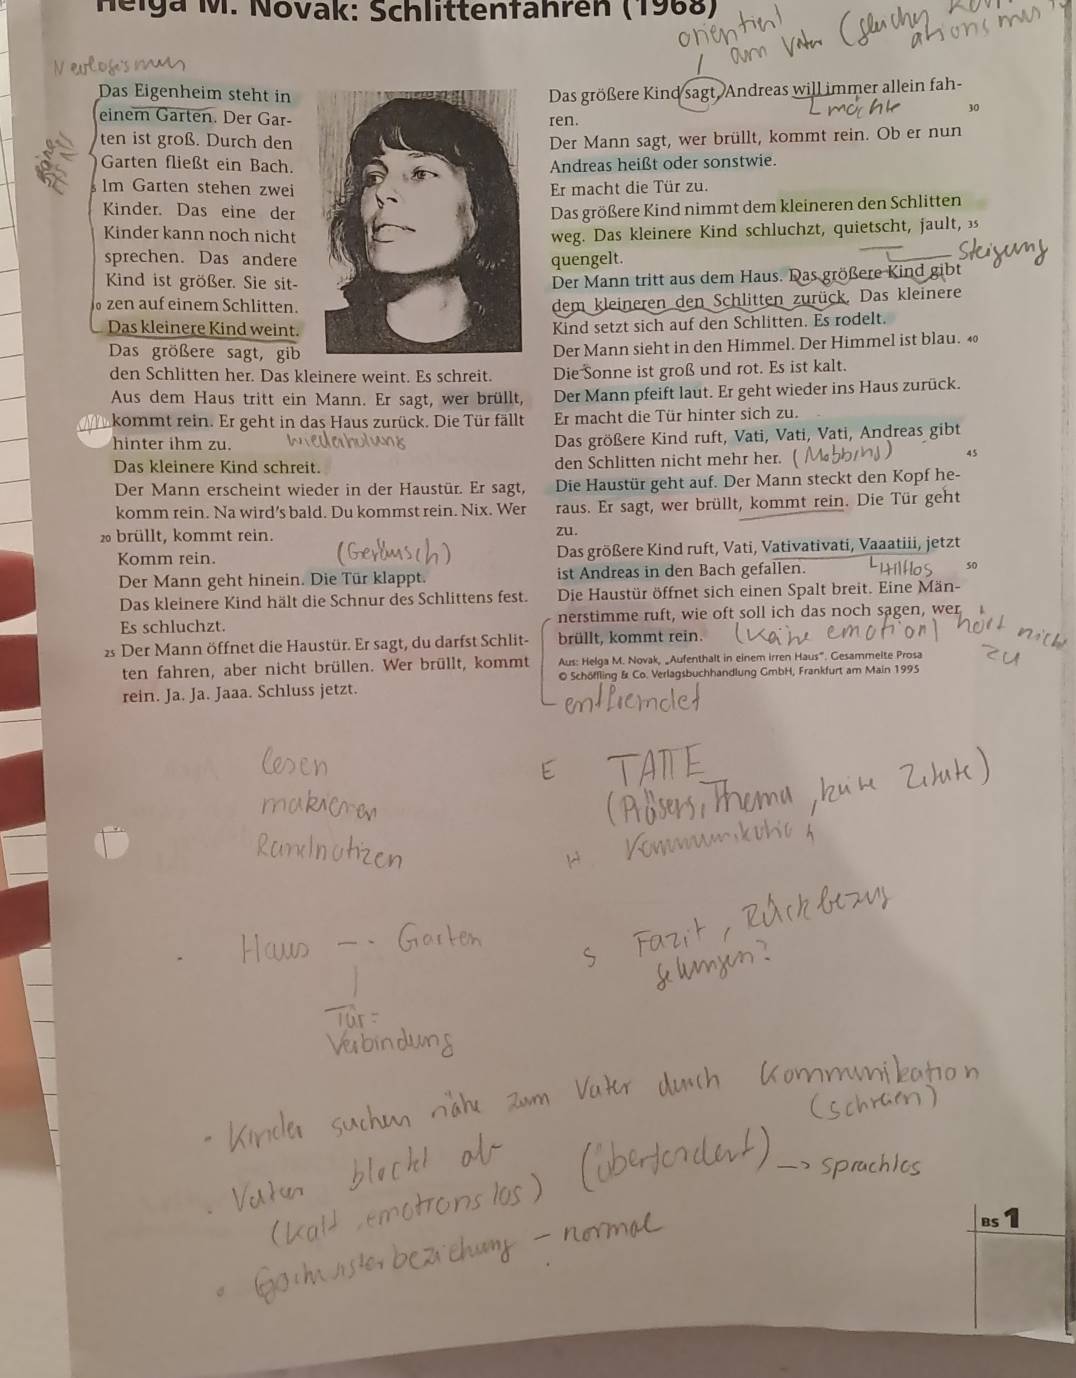 Helga M. Novak: Schlittenfahren (1968)
orientiert
am Vater (gleiche
Neologismus
Das Eigenheim steht in
einem Garten. Der Gar-
ten ist groß. Durch den
Garten fließt ein Bach.
5 Im Garten stehen zwei
Kinder. Das eine der
Kinder kann noch nicht
sprechen. Das andere
Kind ist größer. Sie sit-
10 zen auf einem Schlitten.
Das kleinere Kind weint.
Das größere sagt, gib
den Schlitten her. Das kleinere weint. Es schreit.
Aus dem Haus tritt ein Mann. Er sagt, wer brüllt,
kommt rein. Er geht in das Haus zurück. Die Tür fällt
hinter ihm zu. wiederholung
Das kleinere Kind schreit.
Der Mann erscheint wieder in der Haustür. Er sagt,
komm rein. Na wird's bald. Du kommst rein. Nix. Wer
20 brüllt, kommt rein.
Komm rein. (Geräusch)
Der Mann geht hinein. Die Tür klappt.
Das kleinere Kind hält die Schnur des Schlittens fest.
Es schluchzt.
25 Der Mann öffnet die Haustür. Er sagt, du darfst Schlit-
ten fahren, aber nicht brüllen. Wer brüllt, kommt
rein. Ja. Ja. Jaaa. Schluss jetzt.
Das größere Kind sagt, Andreas will immer allein fah-
ren. möchte 30
Der Mann sagt, wer brüllt, kommt rein. Ob er nun
Andreas heißt oder sonstwie.
Er macht die Tür zu.
Das größere Kind nimmt dem kleineren den Schlitten
weg. Das kleinere Kind schluchzt, quietscht, jault, 35
quengelt. Steigung
Der Mann tritt aus dem Haus. Das größere Kind gibt
dem kleineren den Schlitten zurück. Das kleinere
Kind setzt sich auf den Schlitten. Es rodelt.
Der Mann sieht in den Himmel. Der Himmel ist blau. 40
Die Sonne ist groß und rot. Es ist kalt.
Der Mann pfeift laut. Er geht wieder ins Haus zurück.
Er macht die Tür hinter sich zu.
Das größere Kind ruft, Vati, Vati, Vati, Andreas gibt
den Schlitten nicht mehr her. (Mobbing) 45
Die Haustür geht auf. Der Mann steckt den Kopf he-
raus. Er sagt, wer brüllt, kommt rein. Die Tür geht
zu.
Das größere Kind ruft, Vati, Vativativati, Vaaatiii, jetzt
ist Andreas in den Bach gefallen. Hilflos 50
Die Haustür öffnet sich einen Spalt breit. Eine Män-
nerstimme ruft, wie oft soll ich das noch sagen, wer
brüllt, kommt rein. (Keine emotion) hört nicht
zu
Aus: Helga M. Novak, „Aufenthalt in einem irren Haus“. Gesammelte Prosa
© Schöffling & Co. Verlagsbuchhandlung GmbH, Frankfurt am Main 1995
entfremdet
lesen
makieren
Randnotizen
E TATTE
(Präsens, Thema, keine Zitate)
H Kommunikation
S Fazit, Rückbezug
gelungen?
Haus -- Garten
Tür =
Verbindung
• Kinder suchen nähe zum Vater durch Kommunikation
(schreien)
• Vater blockt ab
(kalt, emotionslos) (überfordert) -> sprachlos
• Geschwisterbeziehung - normal
BS 1